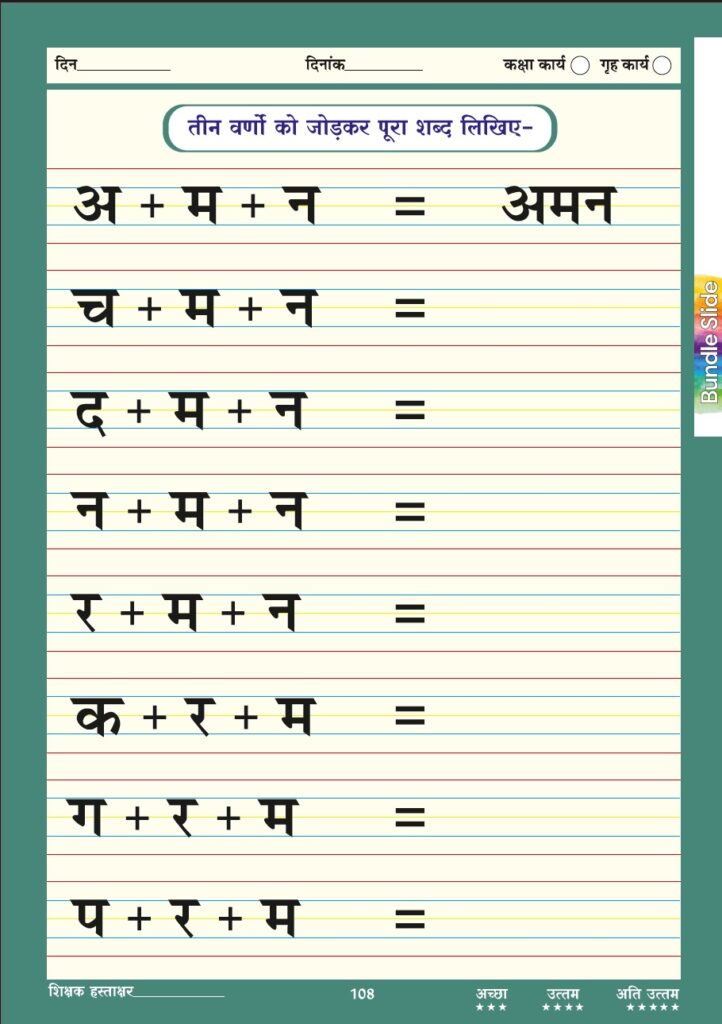 दिन__________ दिनांक__________ कक्षा कार्य ◯ गृह कार्य ◯
तीन वर्णो को जोड़कर पूरा शब्द लिखिए-
अ + म + न = अमन
च + म + न =
द + म + न =
न + म + न =
र + म + न =
क + र + म =
ग + र + म =
प + र + म =
Bundle Slide
शिक्षक हस्ताक्षर__________ 108 अच्छा उत्तम अति उत्तम
★★★ ★★★★ ★★★★★